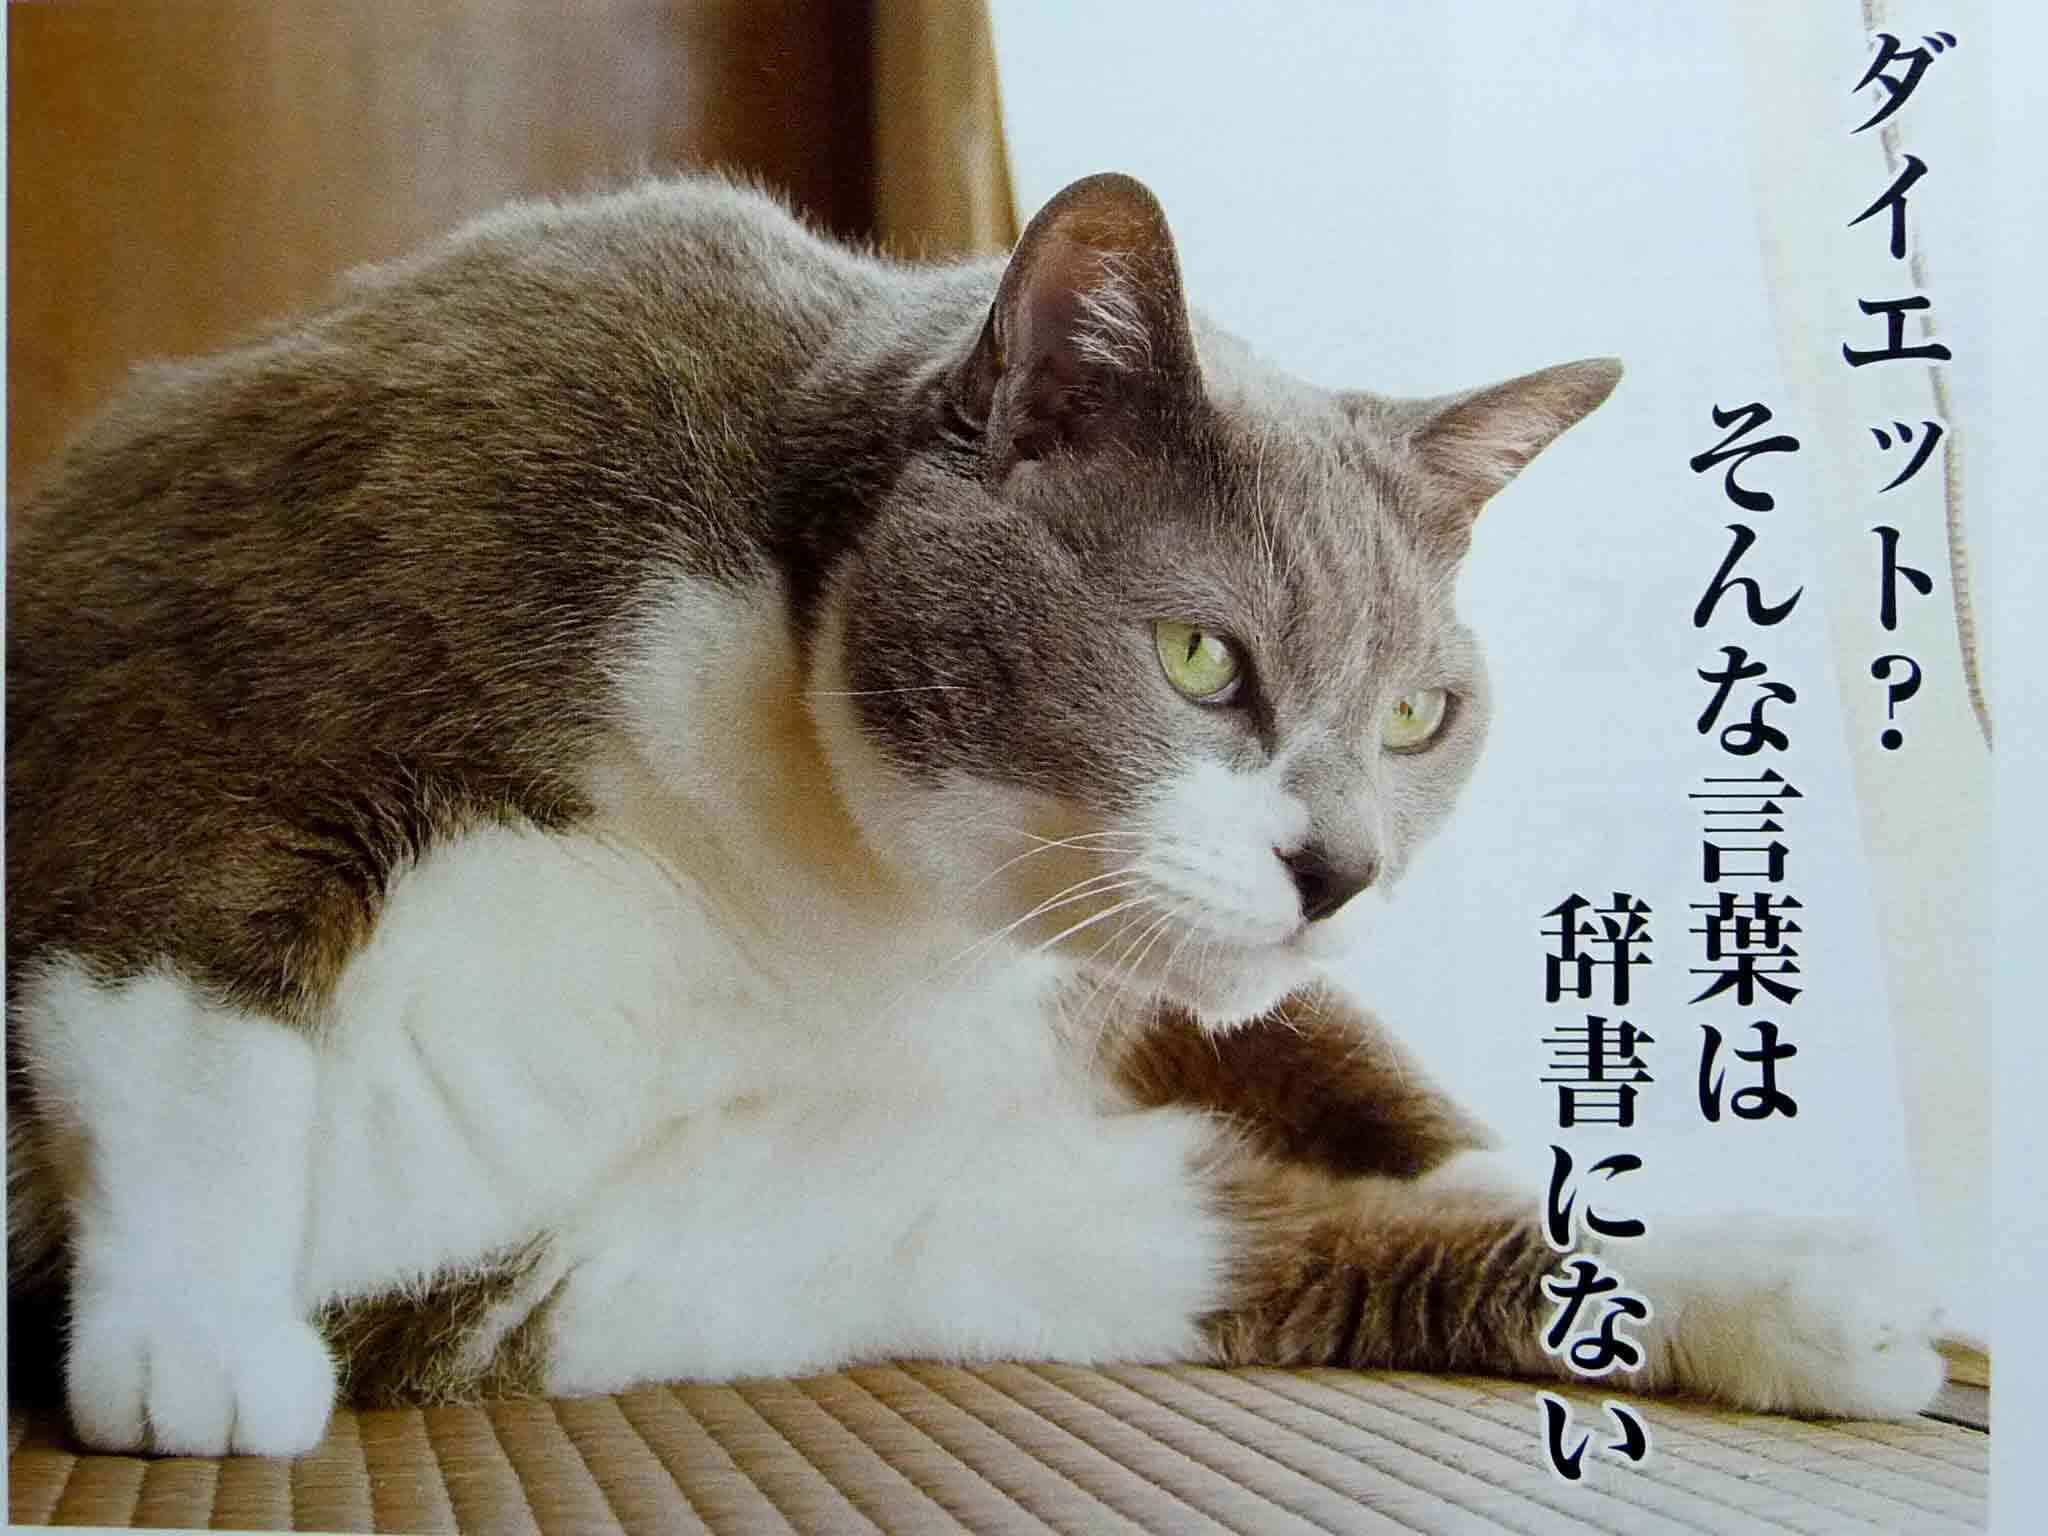 ダイエット？
そんな言葉は
辞書にない